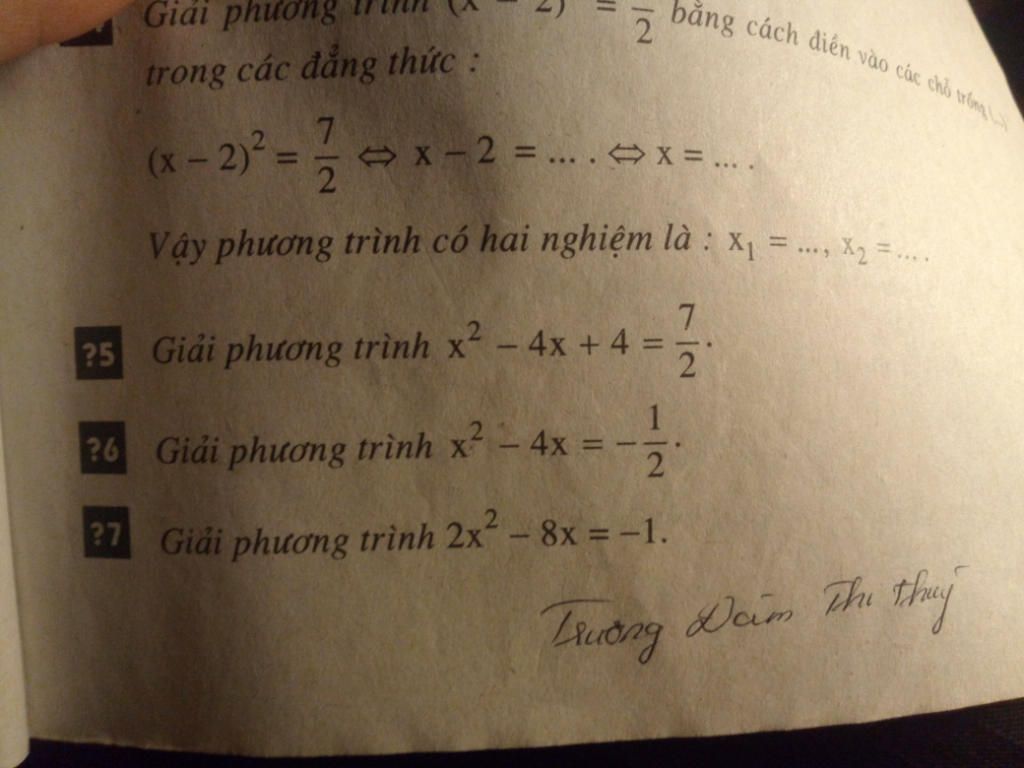 Giải phương trình (x – 2)² = 7/2 bằng cách điền vào các chỗ trống (...)
trong các đẳng thức :
(x – 2)² = 7/2 ⇔ x – 2 = ... . ⇔ x = ... .
Vậy phương trình có hai nghiệm là : x₁ = ..., x₂ = ... .
?5 Giải phương trình x² – 4x + 4 = 7/2.
?6 Giải phương trình x² – 4x = –1/2.
?7 Giải phương trình 2x² – 8x = –1.
Trương Đàm Thi Thuỳ